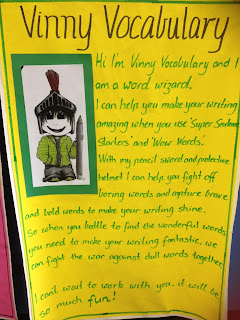 Vinny Vocabulary
Hi I'm Vinny Vocabulary and I
am a word wizard.
I can help you make your writing
amazing when you use 'Super Sentence
Starters' and 'Wow Words'.
With my pencil sword and protective
helmet I can help you fight off
boring words and capture brave
and bold words to make your writing shine.
So when you battle to find the wonderful words
you need to make your writing fantastic, we
can fight the war against dull words together.
I can't wait to work with you, it will be
so much fun!